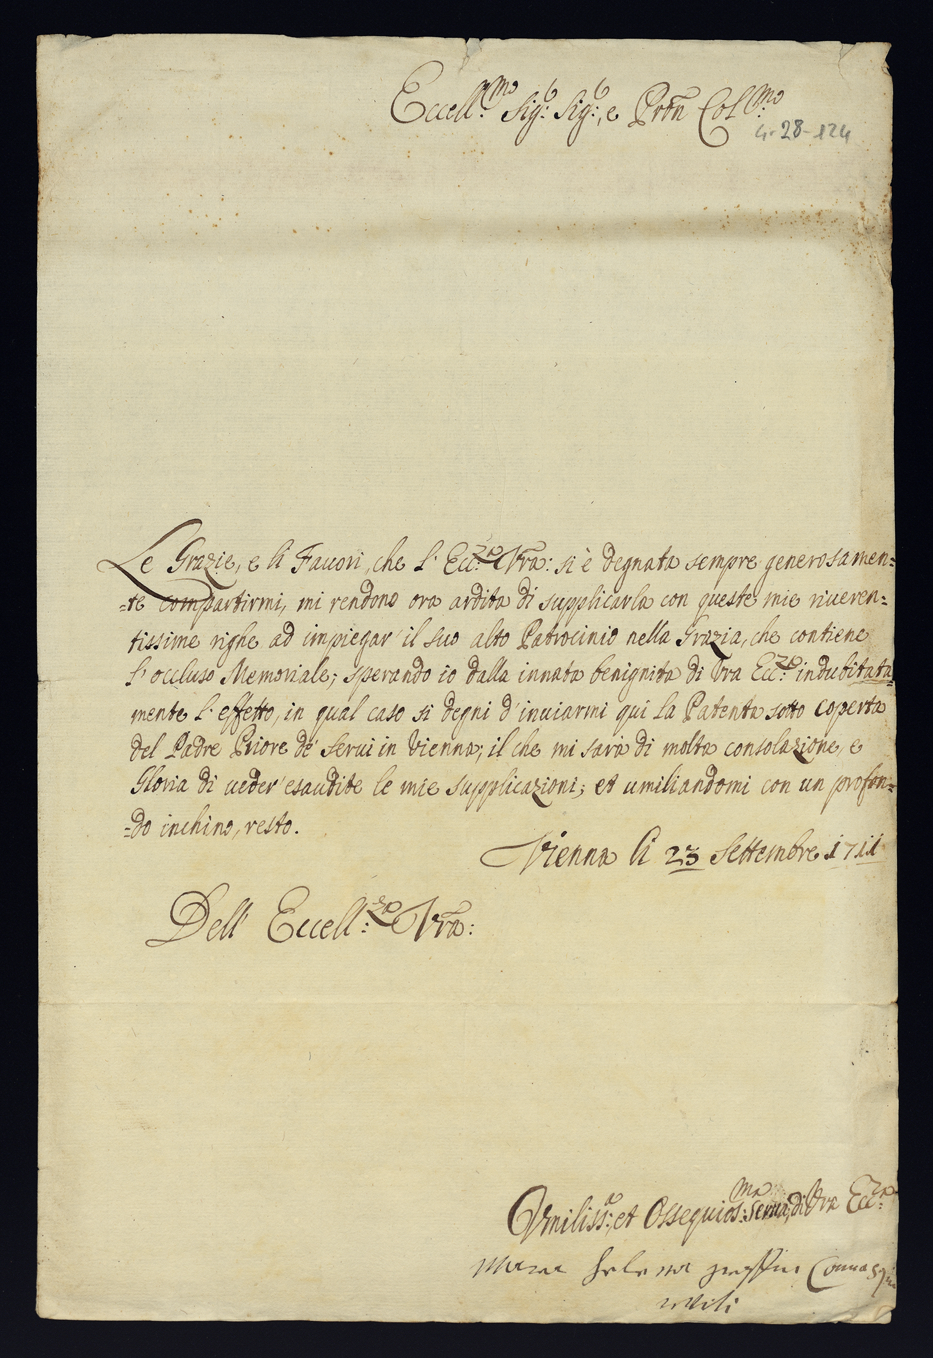 Eccell:mo Sig:r Sig:r, e Prõn Col:mo
4-28-124
Le Grazie, e li Fauori, che l'Ecc:za Vrã: si è degnata sempre generosamen=
=te compartirmi, mi rendono ora ardita di supplicarla con queste mie riueren=
tissime righe ad impiegar' il suo alto Patrocinio nella Grazia, che contiene
l'occluso Memoriale; sperando io dalla innata benignita di Vra Ecc:za indubitata
mente l'effetto, in qual caso si degni d'inuiarmi qui la Patenta sotto coperta
del Padre Priore de' Serui in Vienna; il che mi sarà di molta consolazione, e
Gloria di ueder' esaudite le mie supplicazioni; et umiliandomi con un profon=
=do inchino, resto.
Vienna li 23 Settembre 1711
Dell' Eccell:za Vrã:
Vmiliss:a, et Ossequios:ma Serua, di Vra Ecc:za
Maria